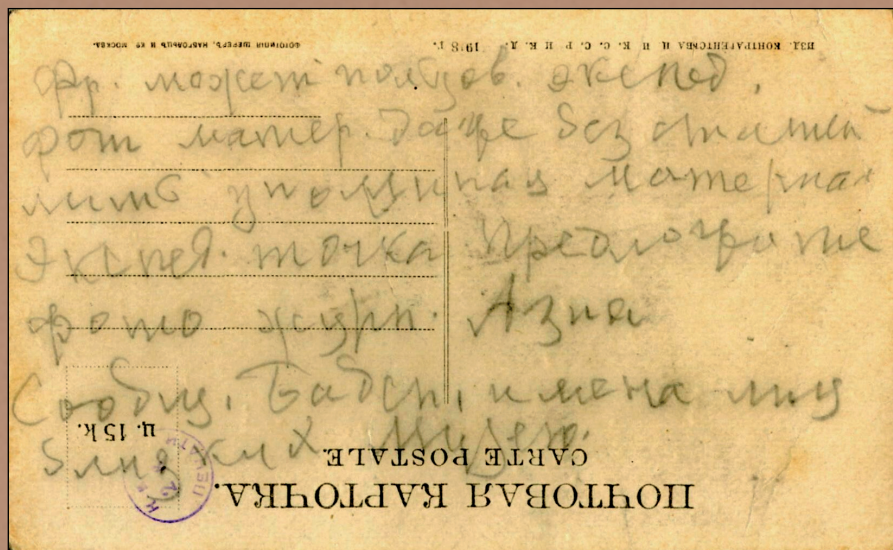 ИЗД. КОНТРАГЕНТСТВА Ц И К. С. С. Р И К. Д. 1918 Г.
ФОТОТИПІЯ ШЕРЕРЪ, НАБГОЛЬЦЪ И Кº МОСКВА.
Фр. может пользов. экспед.
фот матер. даже без статьей
лишь упоминая матерьял
Экспед. точка Предложите
фото журн. Азия
Сообщ. Бабсн, имена лиц
близких Музею.
ц. 15 к.
CARTE POSTALE.
ПОЧТОВАЯ КАРТОЧКА.